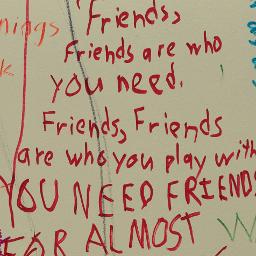 Friends,
nings
Friends are who
k
you need.
Friends, Friends
are who you play with
YOU NEED FRIENDS
FOR ALMOST